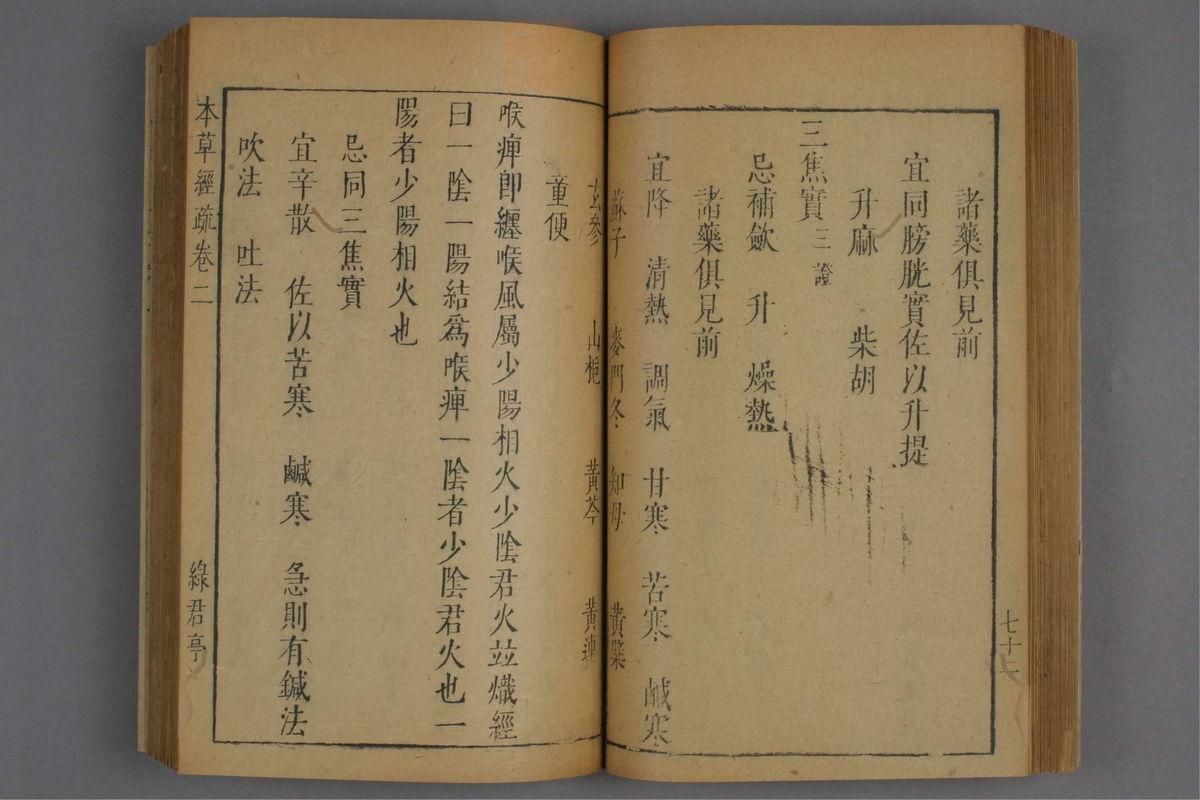 諸藥俱見前
宜同膀胱實佐以升提
升麻　柴胡
三焦實三證
忌補斂　升　燥熱
諸藥俱見前
宜降　清熱　調氣　甘寒　苦寒　鹹寒
蘇子　麥門冬　知母　黃檗
七十二
玄參　山梔　黃芩　黃連
童便
喉痺卽纏喉風屬少陽相火少陰君火竝熾經
曰一陰一陽結爲喉痺一陰者少陰君火也一
陽者少陽相火也
忌同三焦實
宜辛散　佐以苦寒　鹹寒　急則有鍼法
吹法　吐法
本草經疏卷二
綠君亭